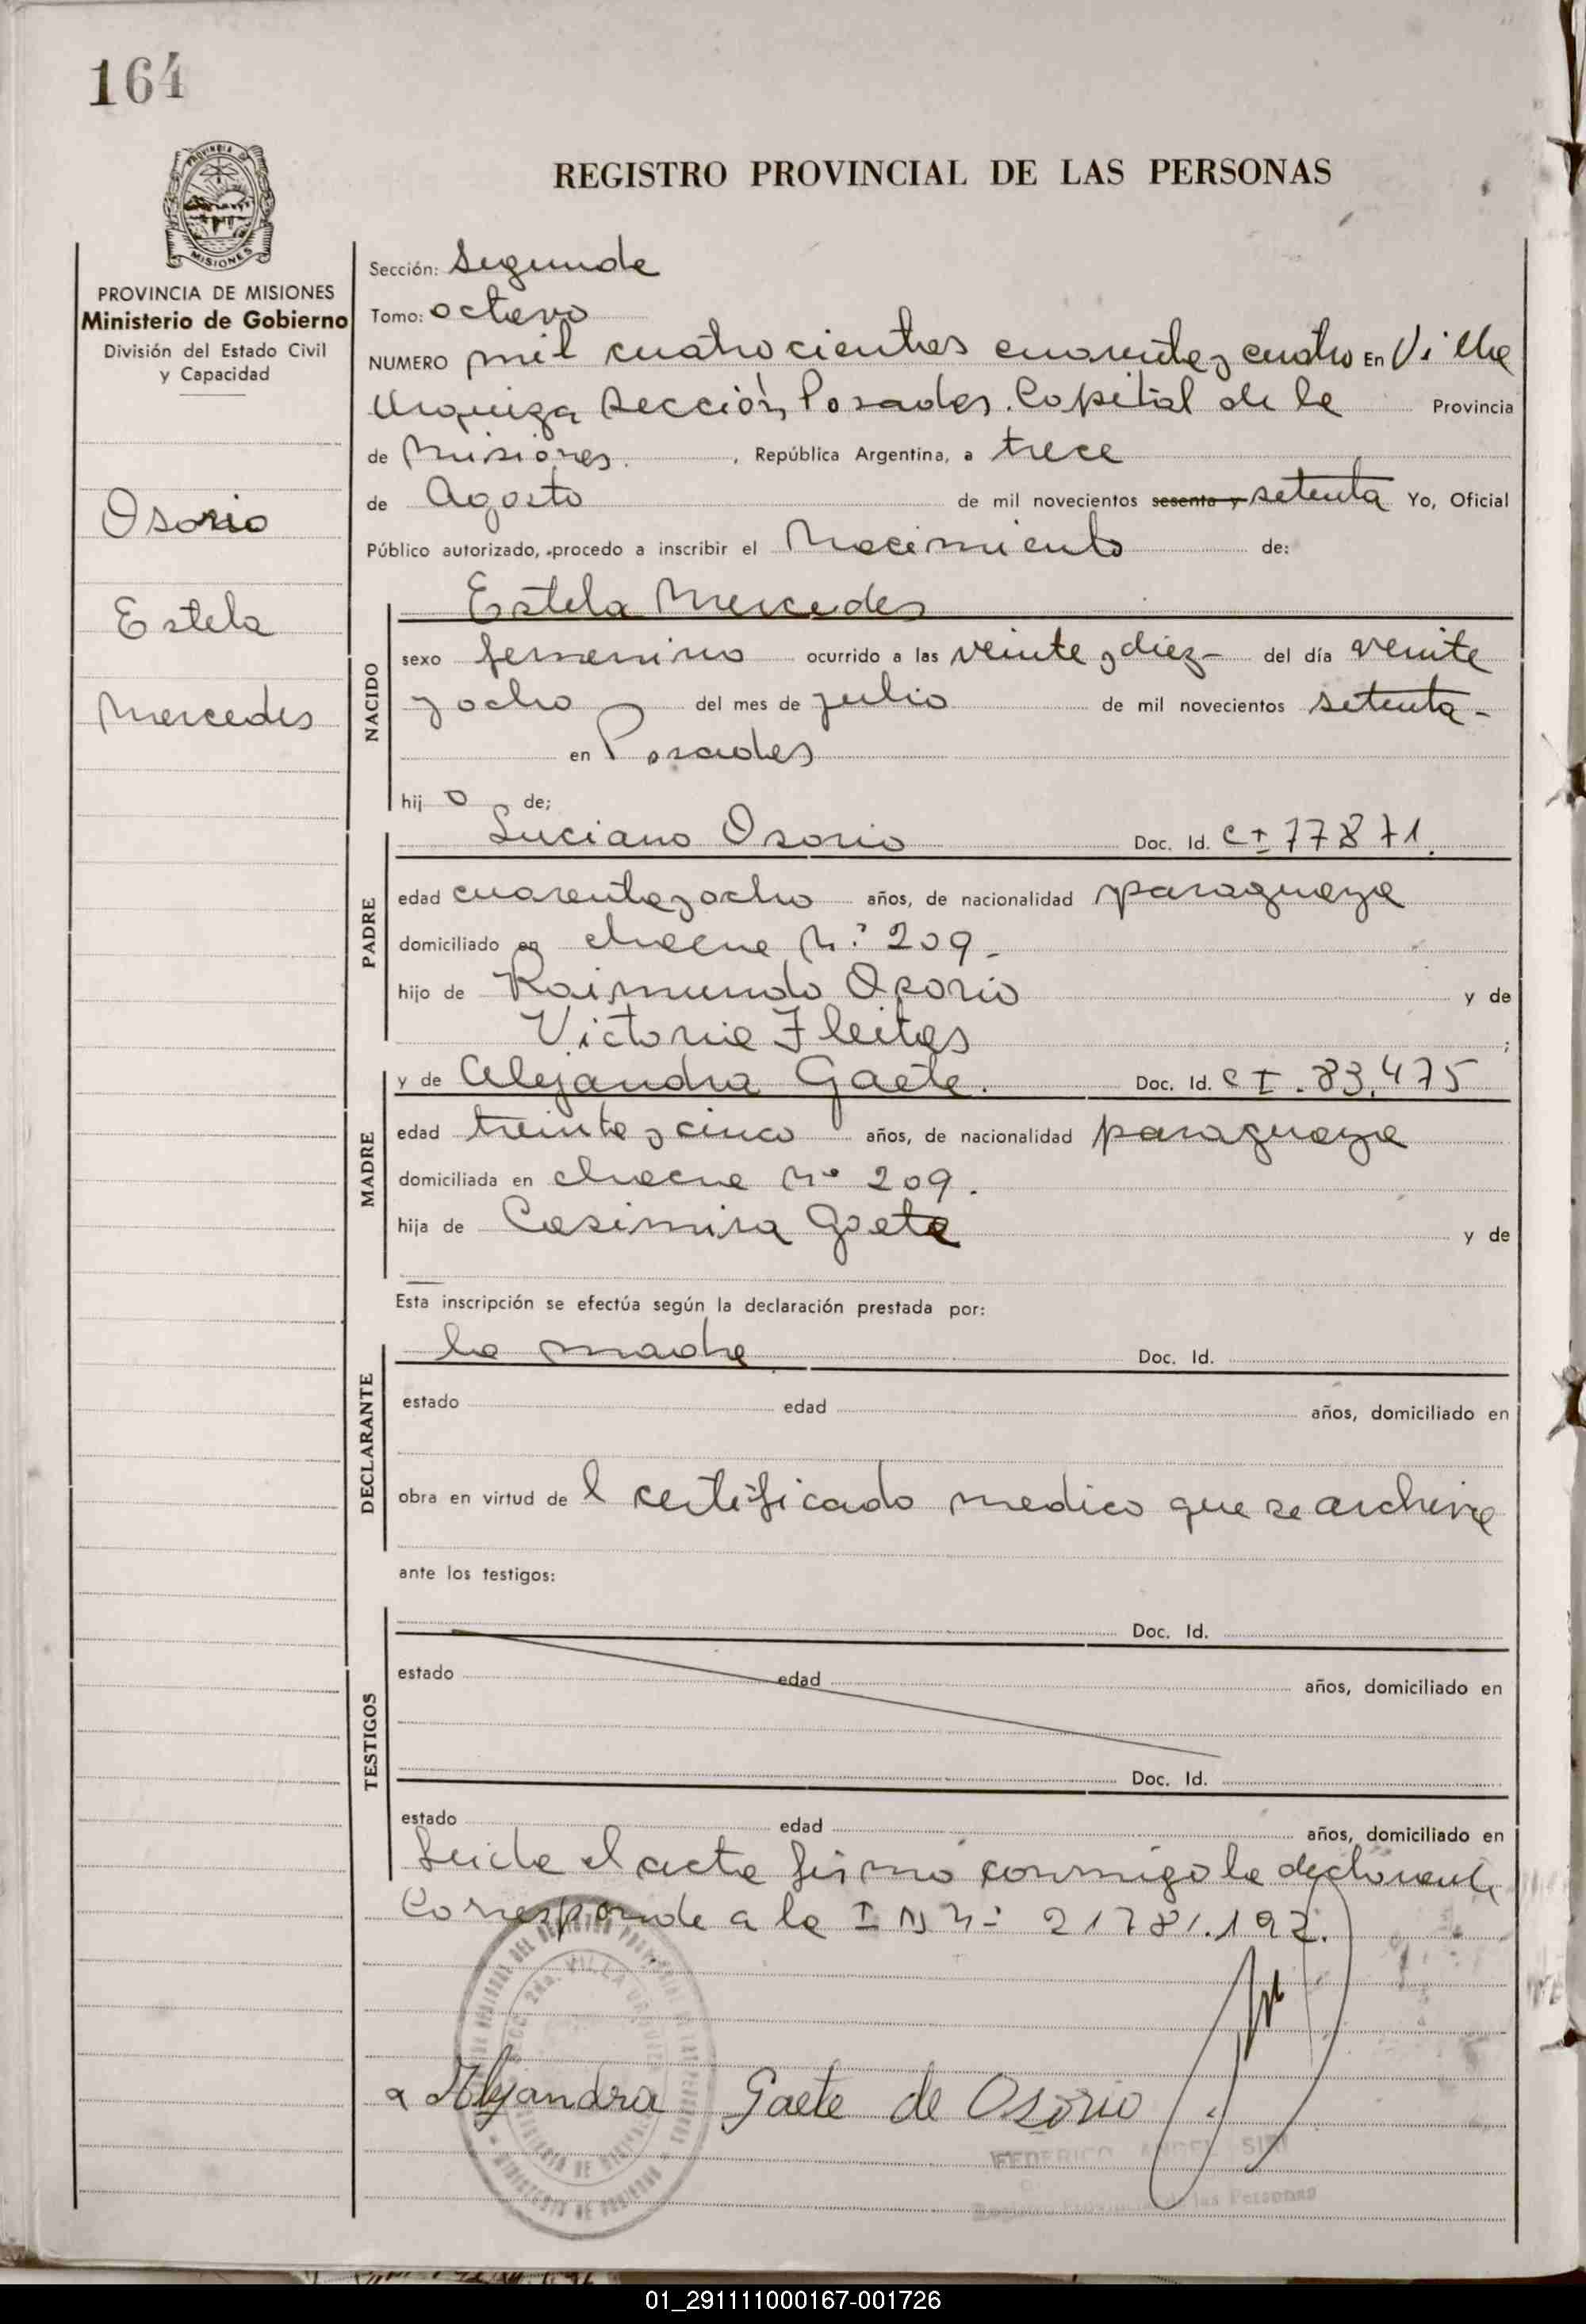 164
PROVINCIA DE MISIONES
REGISTRO PROVINCIAL DE LAS PERSONAS
PROVINCIA DE MISIONES
Ministerio de Gobierno
División del Estado Civil
y Capacidad
Osorio
Estela
Mercedes
Sección: Segunda
Tomo: octavo
NUMERO mil cuatrocientos cuarenta y cuatro En Villa
Urquiza Sección Posadas. Capital de la Provincia
de Misiones. , República Argentina, a trece
de Agosto de mil novecientos sesenta y setenta Yo, Oficial
Público autorizado, procedo a inscribir el Nacimiento de:
Estela Mercedes
NACIDO
sexo femenino ocurrido a las veinte y diez - del día veinte
y ocho del mes de julio de mil novecientos setenta -
en Posadas
hij o de;
Luciano Osorio Doc. Id. CI 77871.
PADRE
edad cuarenta y ocho años, de nacionalidad paraguaya
domiciliado en chacra N.º 209 -
hijo de Raimundo Osorio y de
Victoria Fleitas ;
y de Alejandra Gaete. Doc. Id. CI. 83.475
MADRE
edad treinta y cinco años, de nacionalidad paraguaya
domiciliada en chacra Nº 209.
hija de Casimira Gaete y de
Esta inscripción se efectúa según la declaración prestada por:
la madre Doc. Id.
DECLARANTE
estado edad años, domiciliado en
obra en virtud de l certificado medico que se archiva
ante los testigos:
Doc. Id.
TESTIGOS
estado edad años, domiciliado en
Doc. Id.
estado edad años, domiciliado en
Leida el acta firmó conmigo la declarante
Corresponde a la I N Nº 21781.192.
Alejandra Gaete de Osorio
FEDERICO
Registro Provincial de las Personas
01_291111000167-001726